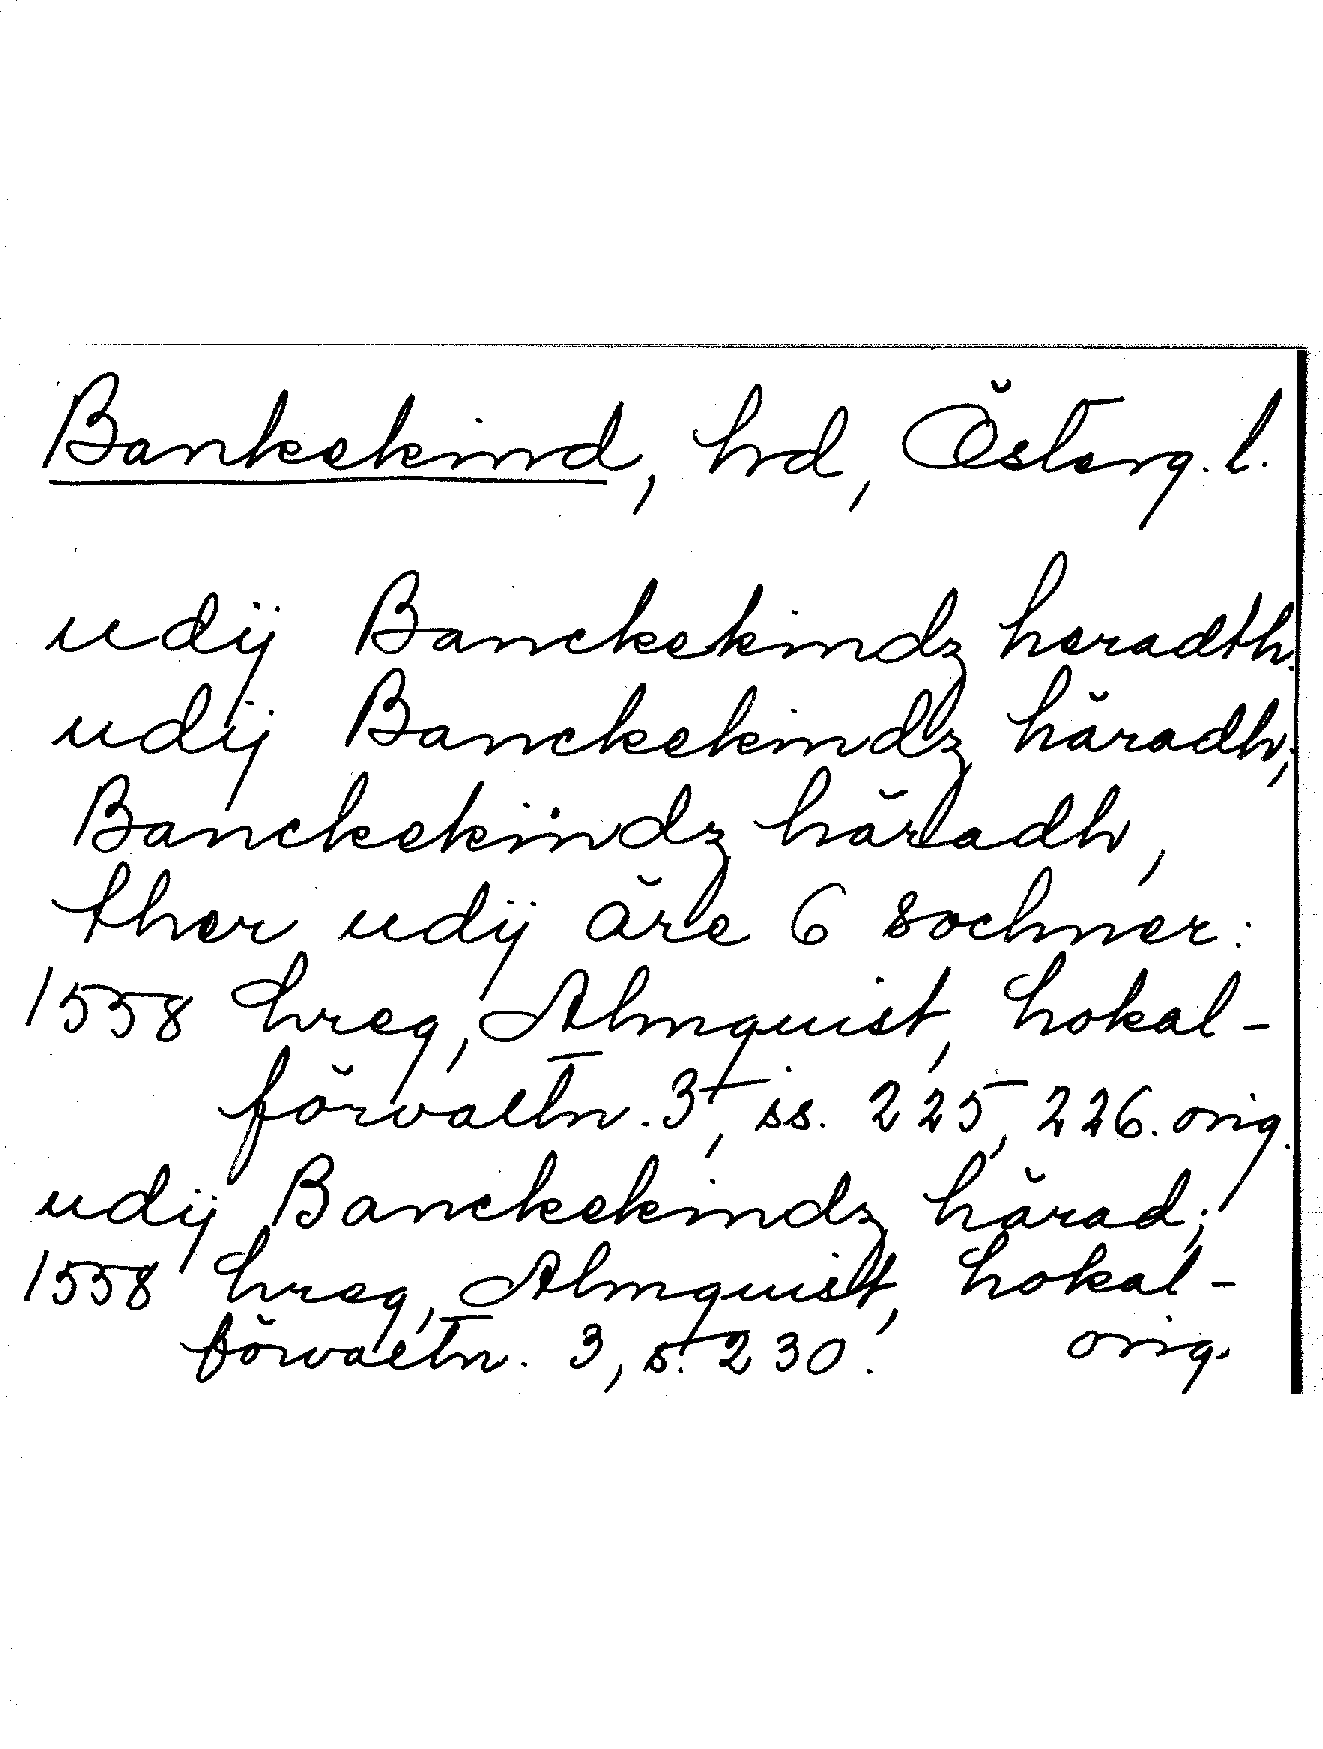 Bankekind, hd, Österg. l.
udij Banckekindz heradth.
udij Banckekindz häradh,
Banckekindz häradh,
ther udij äre 6 sochner:
1558 hreg, Almquist, Lokal-
förvaltn. 3, ss. 225, 226. orig.
udij Banckekindz härad;
1558 hreg, Almquist, Lokal-
förvaltn. 3, s. 230. orig.